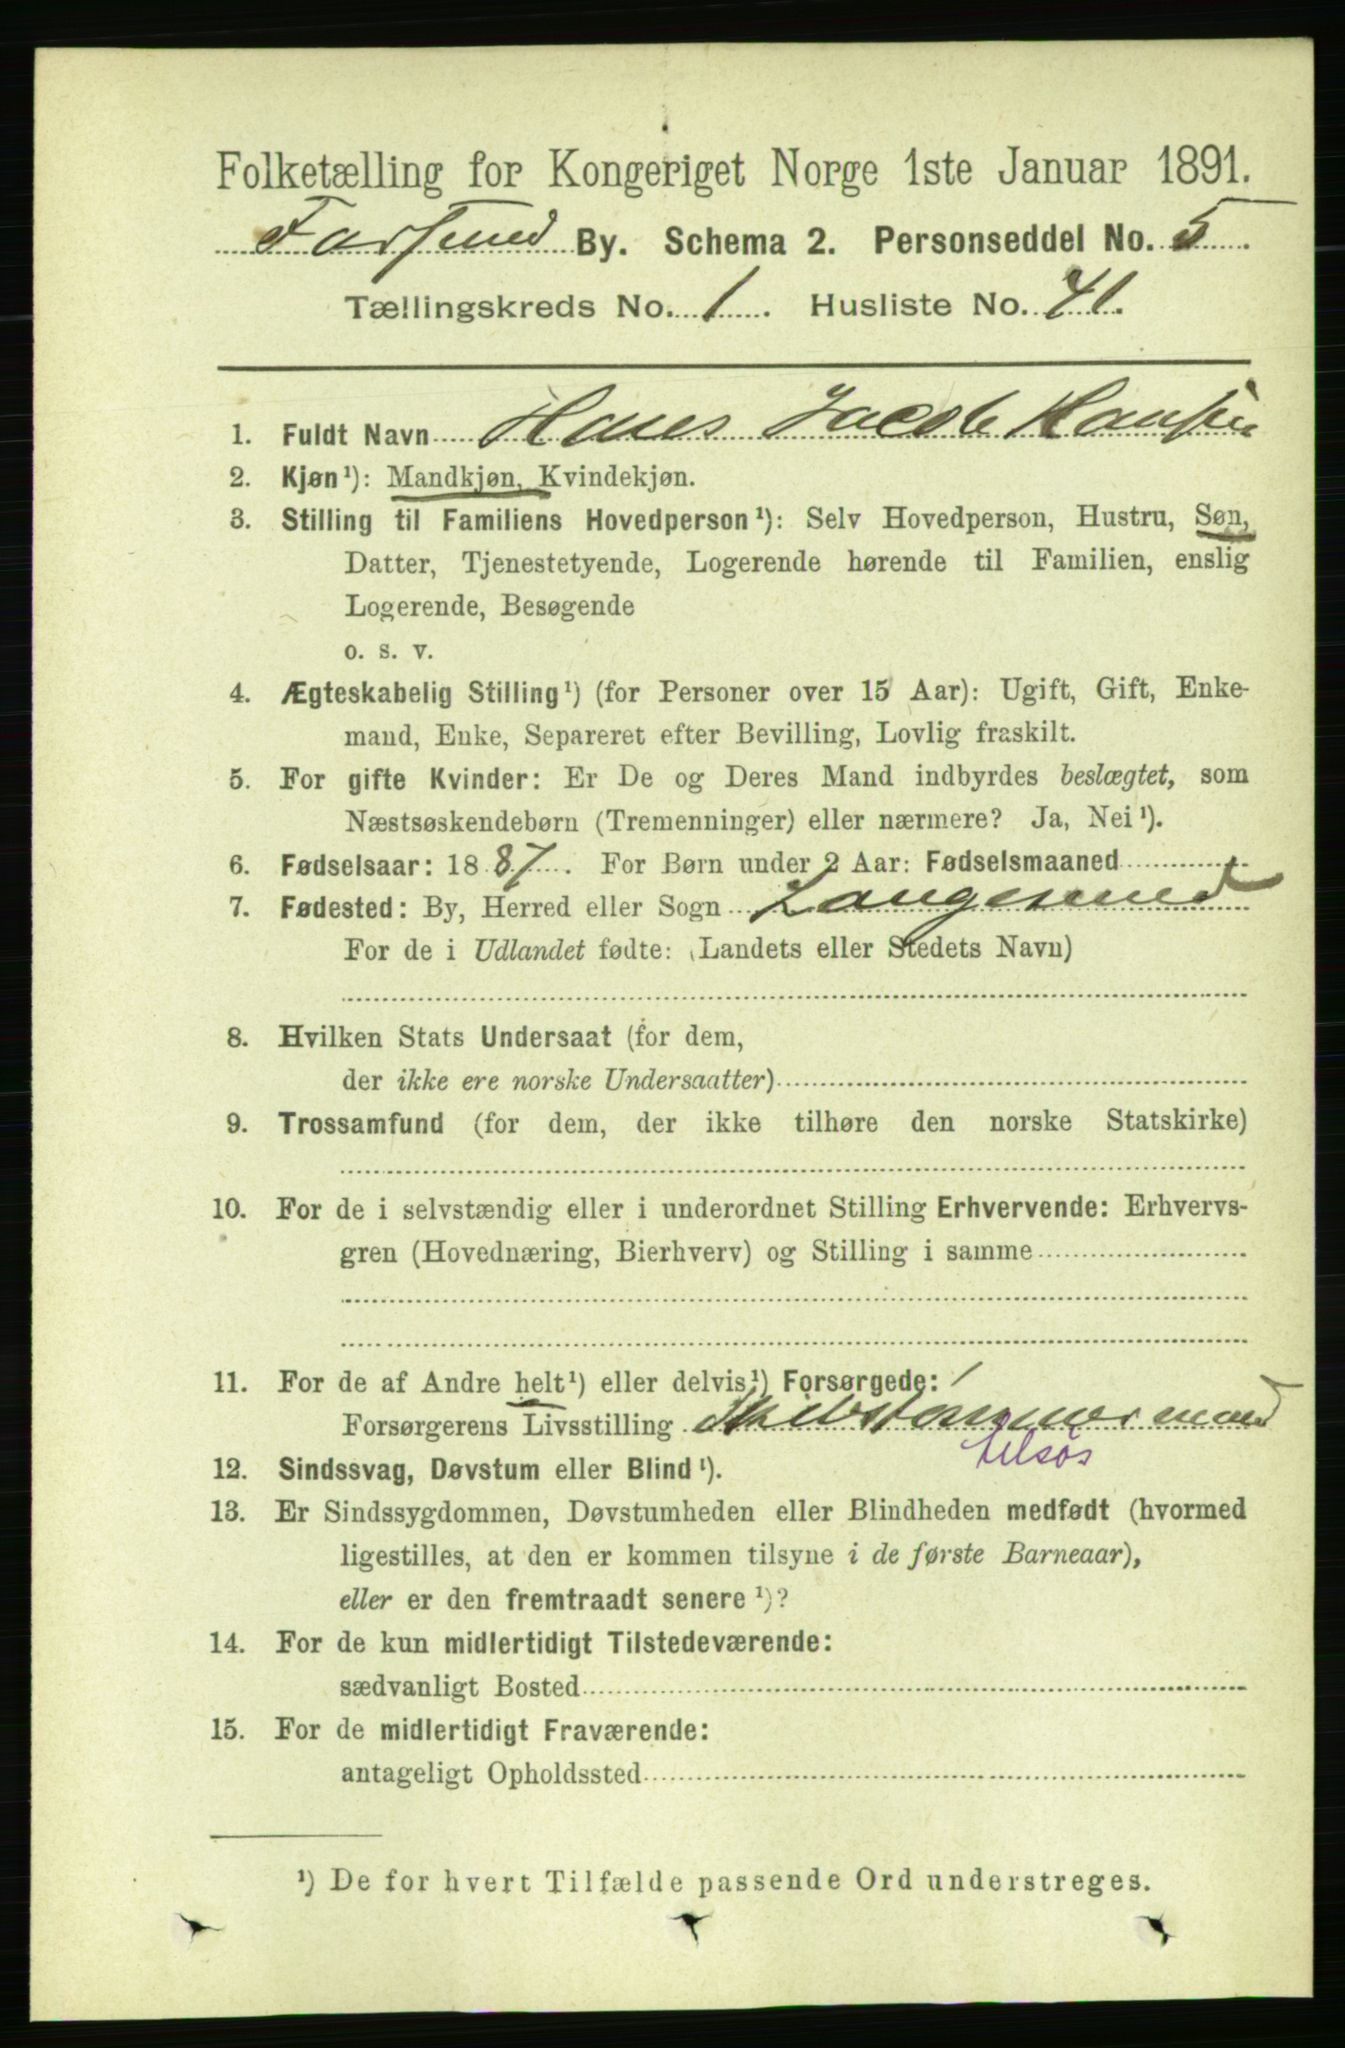 Folketælling for Kongeriget Norge 1ste Januar 1891.
Farsund By. Schema 2. Personseddel No. 5.
Tællingskreds No. 1. Husliste No. 41.
1. Fuldt Navn Hans Jacob Hansen
2. Kjøn¹): Mandkjøn, Kvindekjøn.
3. Stilling til Familiens Hovedperson¹): Selv Hovedperson, Hustru, Søn,
Datter, Tjenestetyende, Logerende hørende til Familien, enslig
Logerende, Besøgende
o. s. v.
4. Ægteskabelig Stilling¹) (for Personer over 15 Aar): Ugift, Gift, Enke-
mand, Enke, Separeret efter Bevilling, Lovlig fraskilt.
5. For gifte Kvinder: Er De og Deres Mand indbyrdes beslægtet, som
Næstsøskendebørn (Tremenninger) eller nærmere? Ja, Nei¹).
6. Fødselsaar: 1887. For Børn under 2 Aar: Fødselsmaaned
7. Fødested: By, Herred eller Sogn Langesund
For de i Udlandet fødte: (Landets eller Stedets Navn)
8. Hvilken Stats Undersaat (for dem,
der ikke ere norske Undersaatter)
9. Trossamfund (for dem, der ikke tilhøre den norske Statskirke)
10. For de i selvstændig eller i underordnet Stilling Erhvervende: Erhvervs-
gren (Hovednæring, Bierhverv) og Stilling i samme
11. For de af Andre helt¹) eller delvis¹) Forsørgede:
Forsørgerens Livsstilling Skibstømmermand
tilsøs
12. Sindssvag, Døvstum eller Blind¹).
13. Er Sindssygdommen, Døvstumheden eller Blindheden medfødt (hvormed
ligestilles, at den er kommen tilsyne i de første Barneaar),
eller er den fremtraadt senere¹)?
14. For de kun midlertidigt Tilstedeværende:
sædvanligt Bosted
15. For de midlertidigt Fraværende:
antageligt Opholdssted
¹) De for hvert Tilfælde passende Ord understreges.